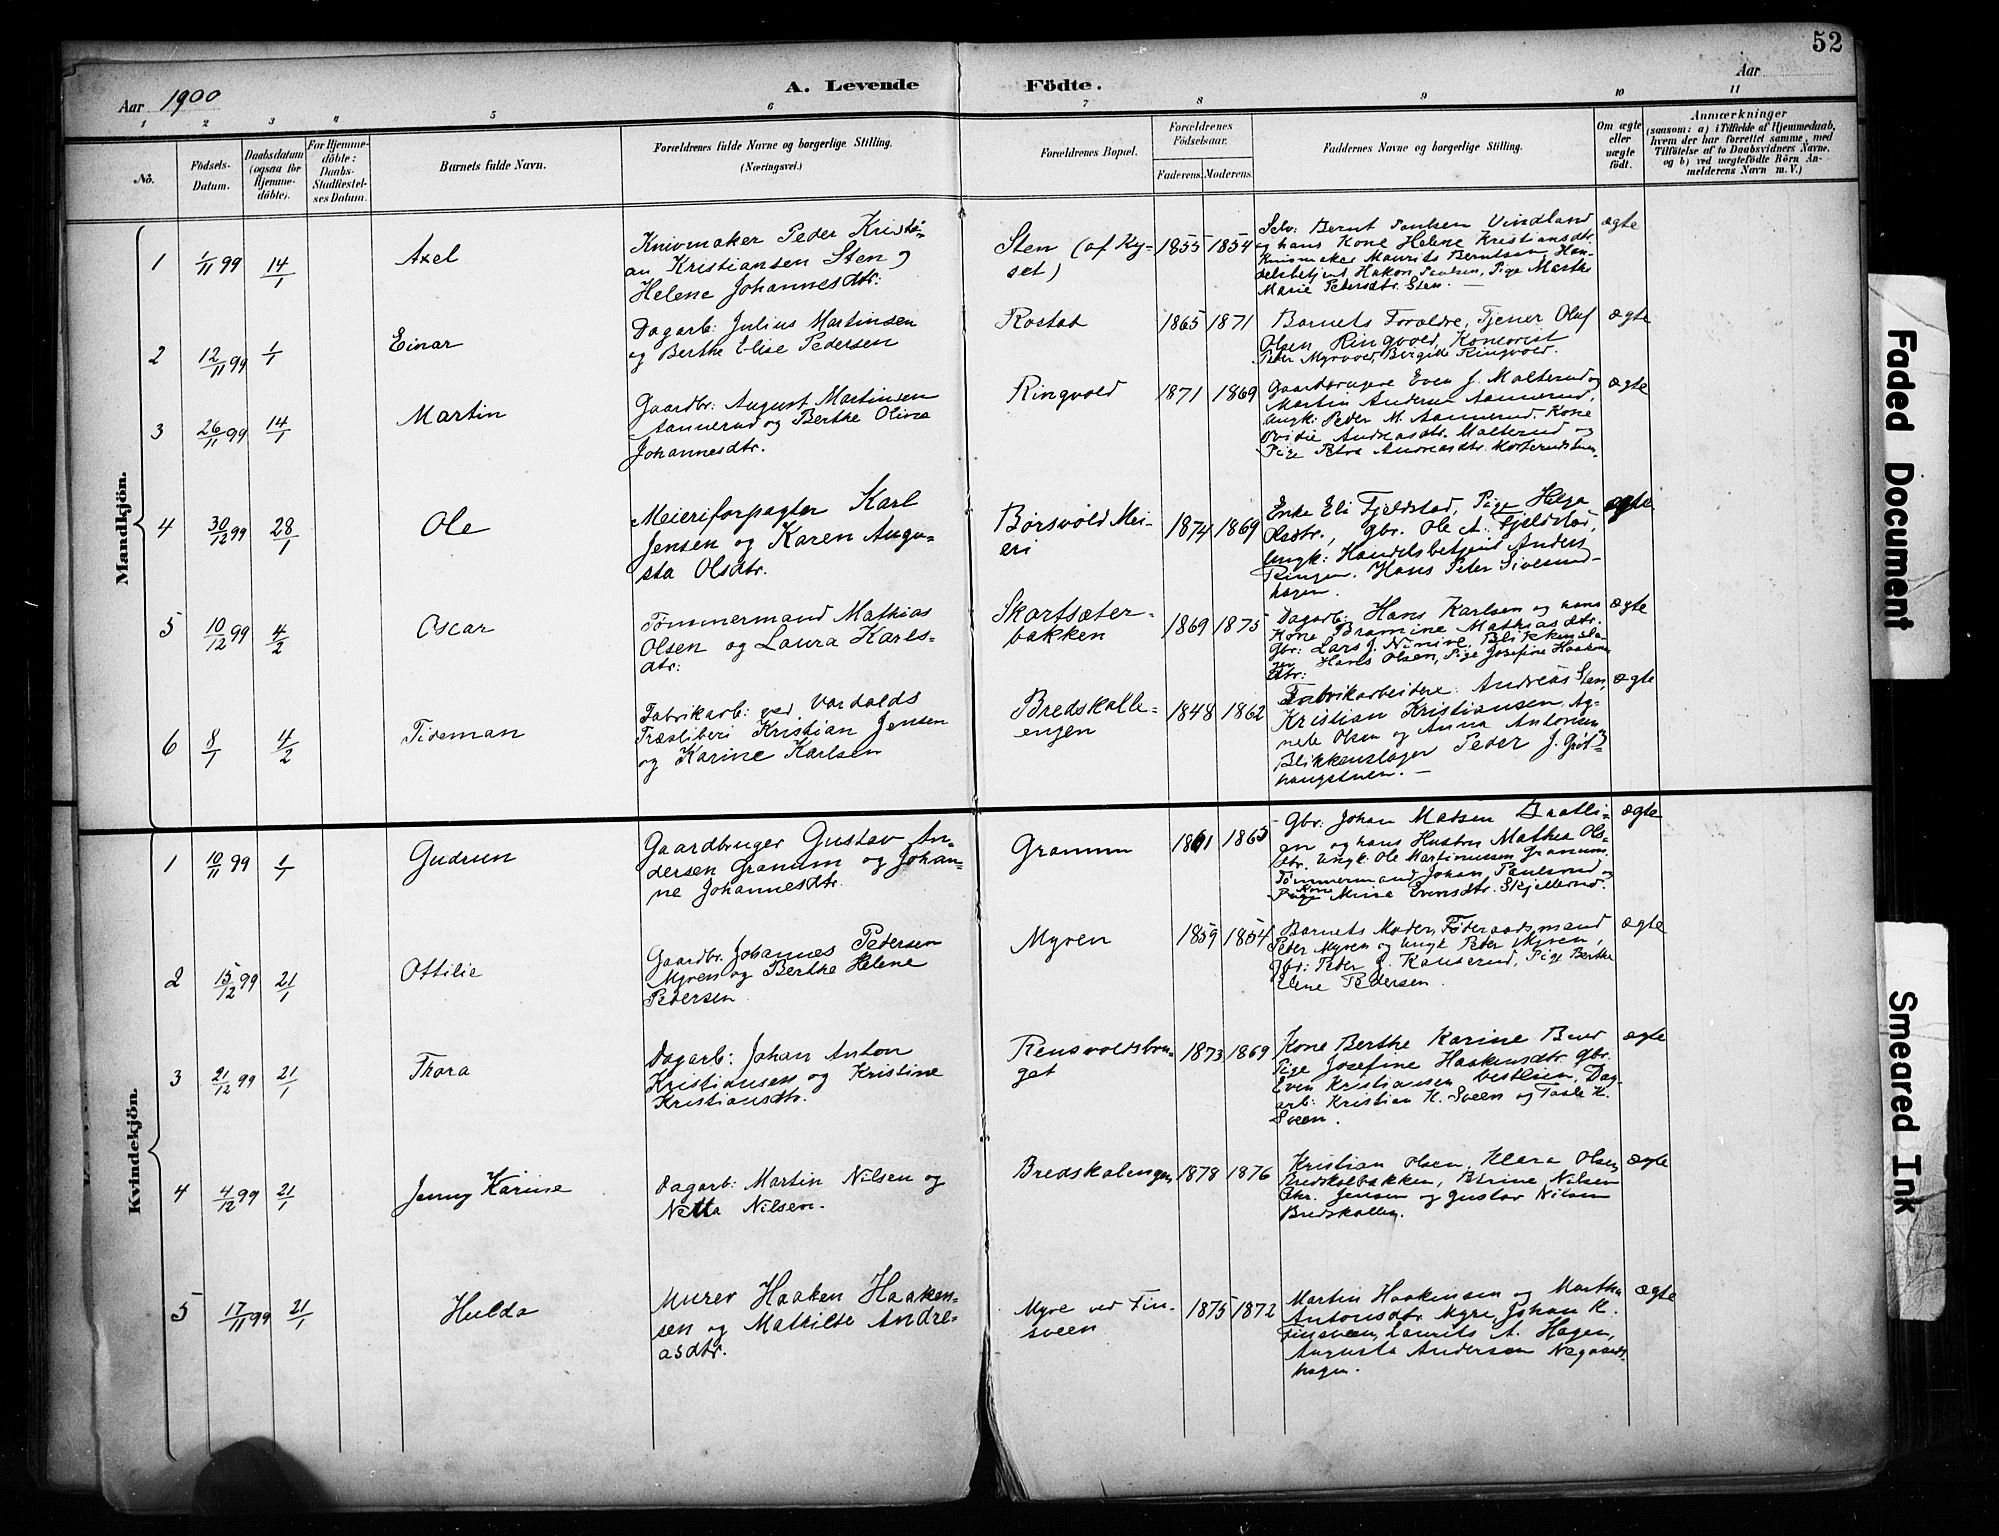 52
Aar 1900
A. Levende Födte.
Aar
1 2 3 4 5 6 7 8 9 10 11
No.
Födsels-
Datum.
Daabsdatum
(ogsaa for
Hjemme-
döbte).
For Hjemme-
döbte:
Daabs-
Stadfæstel-
ses Datum.
Barnets fulde Navn.
Forældrenes fulde Navne og borgerlige Stilling.
(Næringsvei.)
Forældrenes Bopæl.
Forældrenes
Födselsaar.
Faderens. Moderens.
Faddernes Navne og borgerlige Stilling.
Om ægte
eller
uægte
født.
Anmærkninger
(saasom: a) i Tilfælde af Hjemmedaab,
hvem der har forrettet samme, med
Tilföielse af to Daabsvidners Navne,
og b) ved uægtefödte Börn An-
melderens Navn m. V.)
Mandkjön.
1
1/11 99
14/1
Axel
Knivmaker Peder Kristi-
an Kristiansen Sten og
Helene Johannesdtr.
Sten (af Ky-
set)
1855 1854
Selv: Bernt Paulsen Vindland
og hans Kone Helene Kristiansdtr.
Knivmaker Maurits Berntsen, Han-
delsbetjent Hakon Paulsen, Pige Marthe
Marie Petersdtr. Sten. —
ægte
2
12/11 99
1/1
Einar
Dagarb: Julius Martinsen
og Berthe Elise Pedersen
Rostad
1865 1871
Barnets Forældre, Tjener Olaf
Olsen Ringvold,
Peter Myrvold, Ringvold.
ægte
3
26/11 99
14/1
Martin
Gaardbr: August Martinsen
Aannerud og Berthe Oline
Johannesdtr.
Ringvold
1871 1869
Gaardbrugere Even J. Malterud og
Martin Anders. Aannerud,
Ungk: Peder M. Aannerud, Kone
Ovidie Andreasdtr. Malterud og
Pige Petra Andreasdtr.
ægte
4
30/12 99
28/1
Ole
Meieriforpagter Karl
Jensen og Karen Augu-
sta Olsdtr.
Börsvold Mei-
eri
1874 1869
Enke Eli Fjeldstad, Pige Helga
Olsdtr., gbr. Ole A. Fjeldstad,
Ungk: Handelsbetjent Anders
Ringen. Hans Peter Sivesind-
hagen.
ægte
5
10/12 99
4/2
Oscar
Tømmermand Mathias
Olsen og Laura Karls-
dtr:
Skartsæter-
bakken
1869 1875
Dagarb. Hans Karlsen og hans
Kone Bramine Mathiasdtr.
Gbr: Lars J. Ninive, Blikkensla-
ger Hans Olsen, Pige Josefine Haakens
dtr:
ægte
6
8/1
4/2
Tideman
Fabrikarb: ved Vardalds
Træsliberi Kristian Jensen
og Karine Karlsen
Bredskalle-
engen
1848 1862
Fabrikarbeidere: Andreas Sten,
Kristian Kristiansen, Ag-
nete Olsen og Anna Antonsen
Blikkenslager Peder J.
haugstuen. —
ægte
Kvindekjön.
1
10/11 99
1/1
Gudrun
Gaardbruger Gustav An-
dersen Granum og Johan-
ne Johannesdtr.
Granum
1861 1865
Gbr: Johan Matsen
og hans Hustru Mathea Ols-
dtr. Ungk: Ole Martinussen Granum.
Tömmermand Johan Paulsrud og
Kone
Pige Mina Evensdtr. Skjellerud.
ægte
2
15/12 99
21/1
Ottilie
Gaardbr. Johannes Pedersen
Myren og Berthe Helene
Pedersen
Myren
1859 1854
Barnets Moder, Föderaadsmand
Peter Myren og Ungk Peter Myren,
Gbr: Peder J. Kanserud, Pige Berthe
Elene Pedersen.
ægte
3
21/12 99
21/1
Thora
Dagarb: Johan Anton
Kristiansen og Kristine
Kristiansdtr.
Rensvoldsbru-
get
1873 1869
Kone Berthe Karine
Pige Josefine Haakensdtr. gbr.
Even Kristiansen Vestlien, Dag-
arb: Kristian K. Sveen og K.
Sveen.
ægte
4
4/12 99
21/1
Jenny Karine
Dagarb: Martin Nilsen og
Netta Nilsen.
Bredskalengen
1878 1876
Kristian Olsen, Klara Olsen
Bredskalbakken, Nilsen
Chr. Jensen og Gustav Nilsen
Bredskallen.
ægte
5
17/11 99
21/1
Hulda
Murer Haaken Haaken-
sen og Mathilde Andre-
asdtr.
Myre ved Fin-
sveen
1875 1872
Martin Haakensen og Martha
Antonsdtr Myre, Johan K.
Finsveen, Laurits A. Hagen,
Augusta Andersen
hagen.
ægte
Faded Document
Smeared Ink